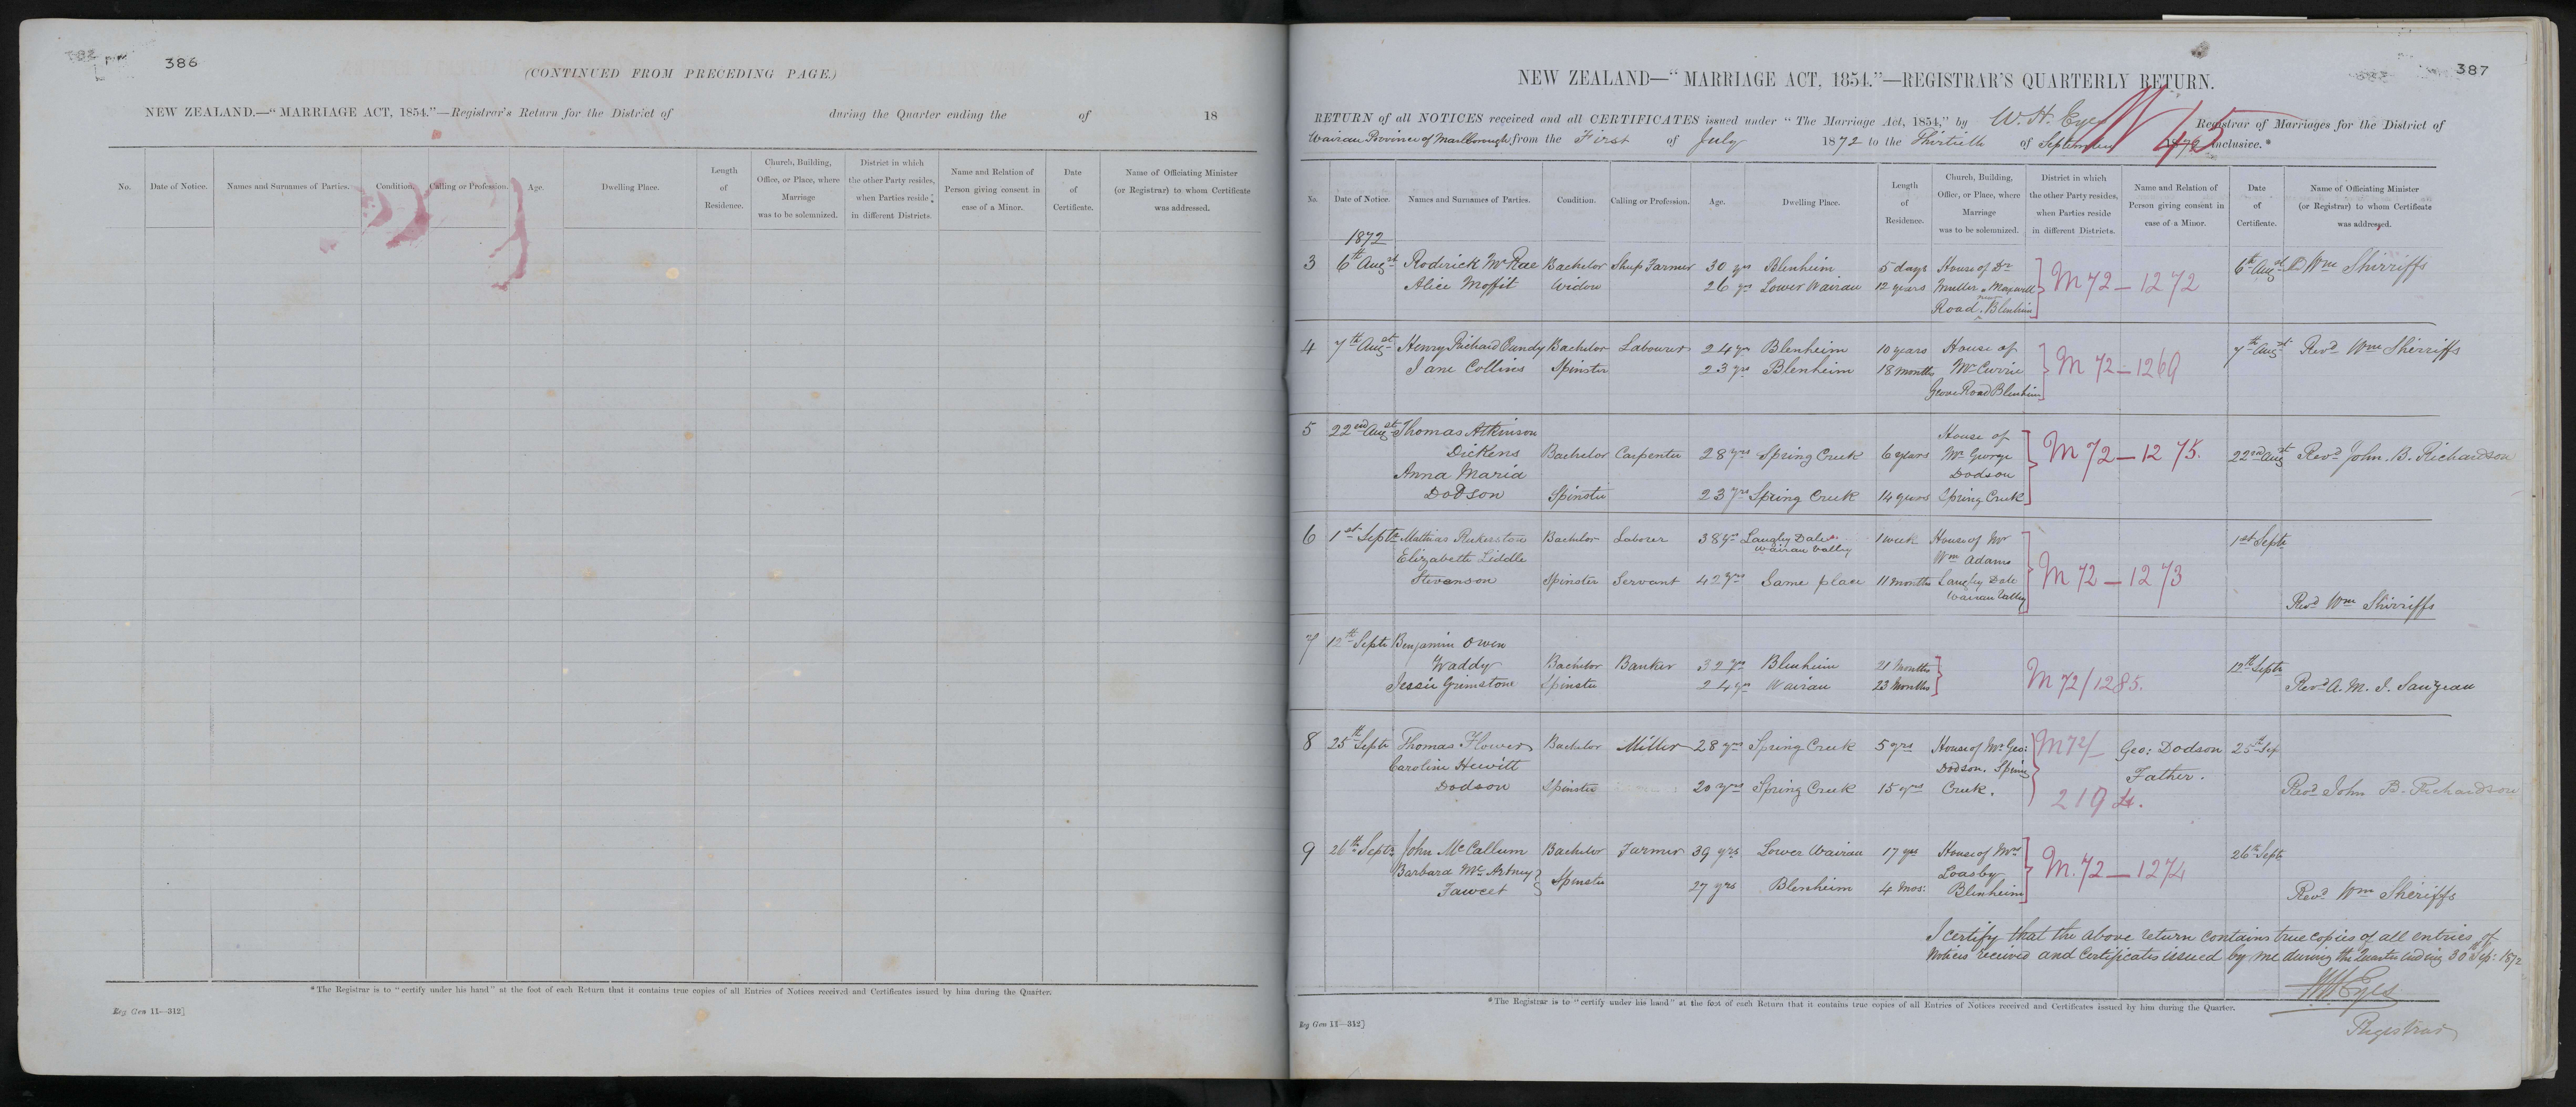 386
(CONTINUED FROM PRECEDING PAGE.)
NEW ZEALAND.—"MARRIAGE ACT, 1854."—Registrar's Return for the District of during the Quarter ending the of 18
No. Date of Notice. Names and Surnames of Parties. Condition. Calling or Profession. Age. Dwelling Place. Length of Residence. Church, Building, Office, or Place, where Marriage was to be solemnized. District in which the other Party resides, when Parties reside in different Districts. Name and Relation of Person giving consent in case of a Minor. Date of Certificate. Name of Officiating Minister (or Registrar) to whom Certificate was addressed.
*The Registrar is to "certify under his hand" at the foot of each Return that it contains true copies of all Entries of Notices received and Certificates issued by him during the Quarter.
Reg Gen 11—312]
387
NEW ZEALAND—"MARRIAGE ACT, 1854."—REGISTRAR'S QUARTERLY RETURN.
RETURN of all NOTICES received and all CERTIFICATES issued under "The Marriage Act, 1854," by W. H. Eyes Registrar of Marriages for the District of
Wairau Province of Marlborough from the First of July 1872 to the Thirtieth of September 1872 inclusive.*
45
No. Date of Notice. Names and Surnames of Parties. Condition. Calling or Profession. Age. Dwelling Place. Length of Residence. Church, Building, Office, or Place, where Marriage was to be solemnized. District in which the other Party resides, when Parties reside in different Districts. Name and Relation of Person giving consent in case of a Minor. Date of Certificate. Name of Officiating Minister (or Registrar) to whom Certificate was addressed.
1872
3 6th Augst Roderick McRae Bachelor Sheep Farmer 30 yrs Blenheim 5 days House of Dr M 72—1272 6th Augst Wm Shirriffs
Alice Moffit Widow 26 yrs Lower Wairau 12 years Muller Maxwell
Road Blenheim
4 7th Augst Henry Richard Cundy Bachelor Labourer 24 yrs Blenheim 10 years House of M 72—1269 7th Augst Revd Wm Sherriffs
Jane Collins Spinster 23 yrs Blenheim 18 months Mr Currie
Grove Road Blenheim
5 22nd Augst Thomas Atkinson House of
Dickens Bachelor Carpenter 28 yrs Spring Creek 6 years Mr George M 72—1275. 22nd Augst Revd John. B. Richardson
Anna Maria Dodson
Dodson Spinster 23 yrs Spring Creek 14 years Spring Creek
6 1st Septr Mathias Bachelor Laborer 38 yrs Langley Dale 1 week House of Mr 1st Septr
Wairau Valley
Elizabeth Liddle Wm Adams
Stevenson Spinster Servant 42 yrs Same place 11 months Langley Dale M 72—1273
Wairau Valley Revd Wm Shirriffs
7 12th Septr Benjamin Owen
Waddy Bachelor Banker 32 yrs Blenheim 21 months 12th Septr
Jessie Grimstone Spinster 24 yrs Wairau 23 months M 72/1285. Revd A. M. I. Sauzeau
8 25th Septr Thomas Flower Bachelor Miller 28 yrs Spring Creek 5 yrs House of Mr Geo: M 72/ Geo: Dodson 25th Sep
Caroline Hewitt Dodson. Spring Father.
Dodson Spinster 20 yrs Spring Creek 15 yrs Creek. 2194. Revd John B. Richardson
9 26th Septr John McCallum Bachelor Farmer 39 yrs Lower Wairau 17 yrs House of Mrs M. 72—1274 26th Septr
Barbara McArtney Spinster Loasby
Fawcet 27 yrs Blenheim 4 mos: Blenheim Revd Wm Sheriffs
I certify that the above return contains true copies of all entries of
Notices received and Certificates issued by me during the Quarter ending 30th Sep: 1872
W H Eyes
Registrar
*The Registrar is to "certify under his hand" at the foot of each Return that it contains true copies of all Entries of Notices received and Certificates issued by him during the Quarter.
Reg Gen 11—312]